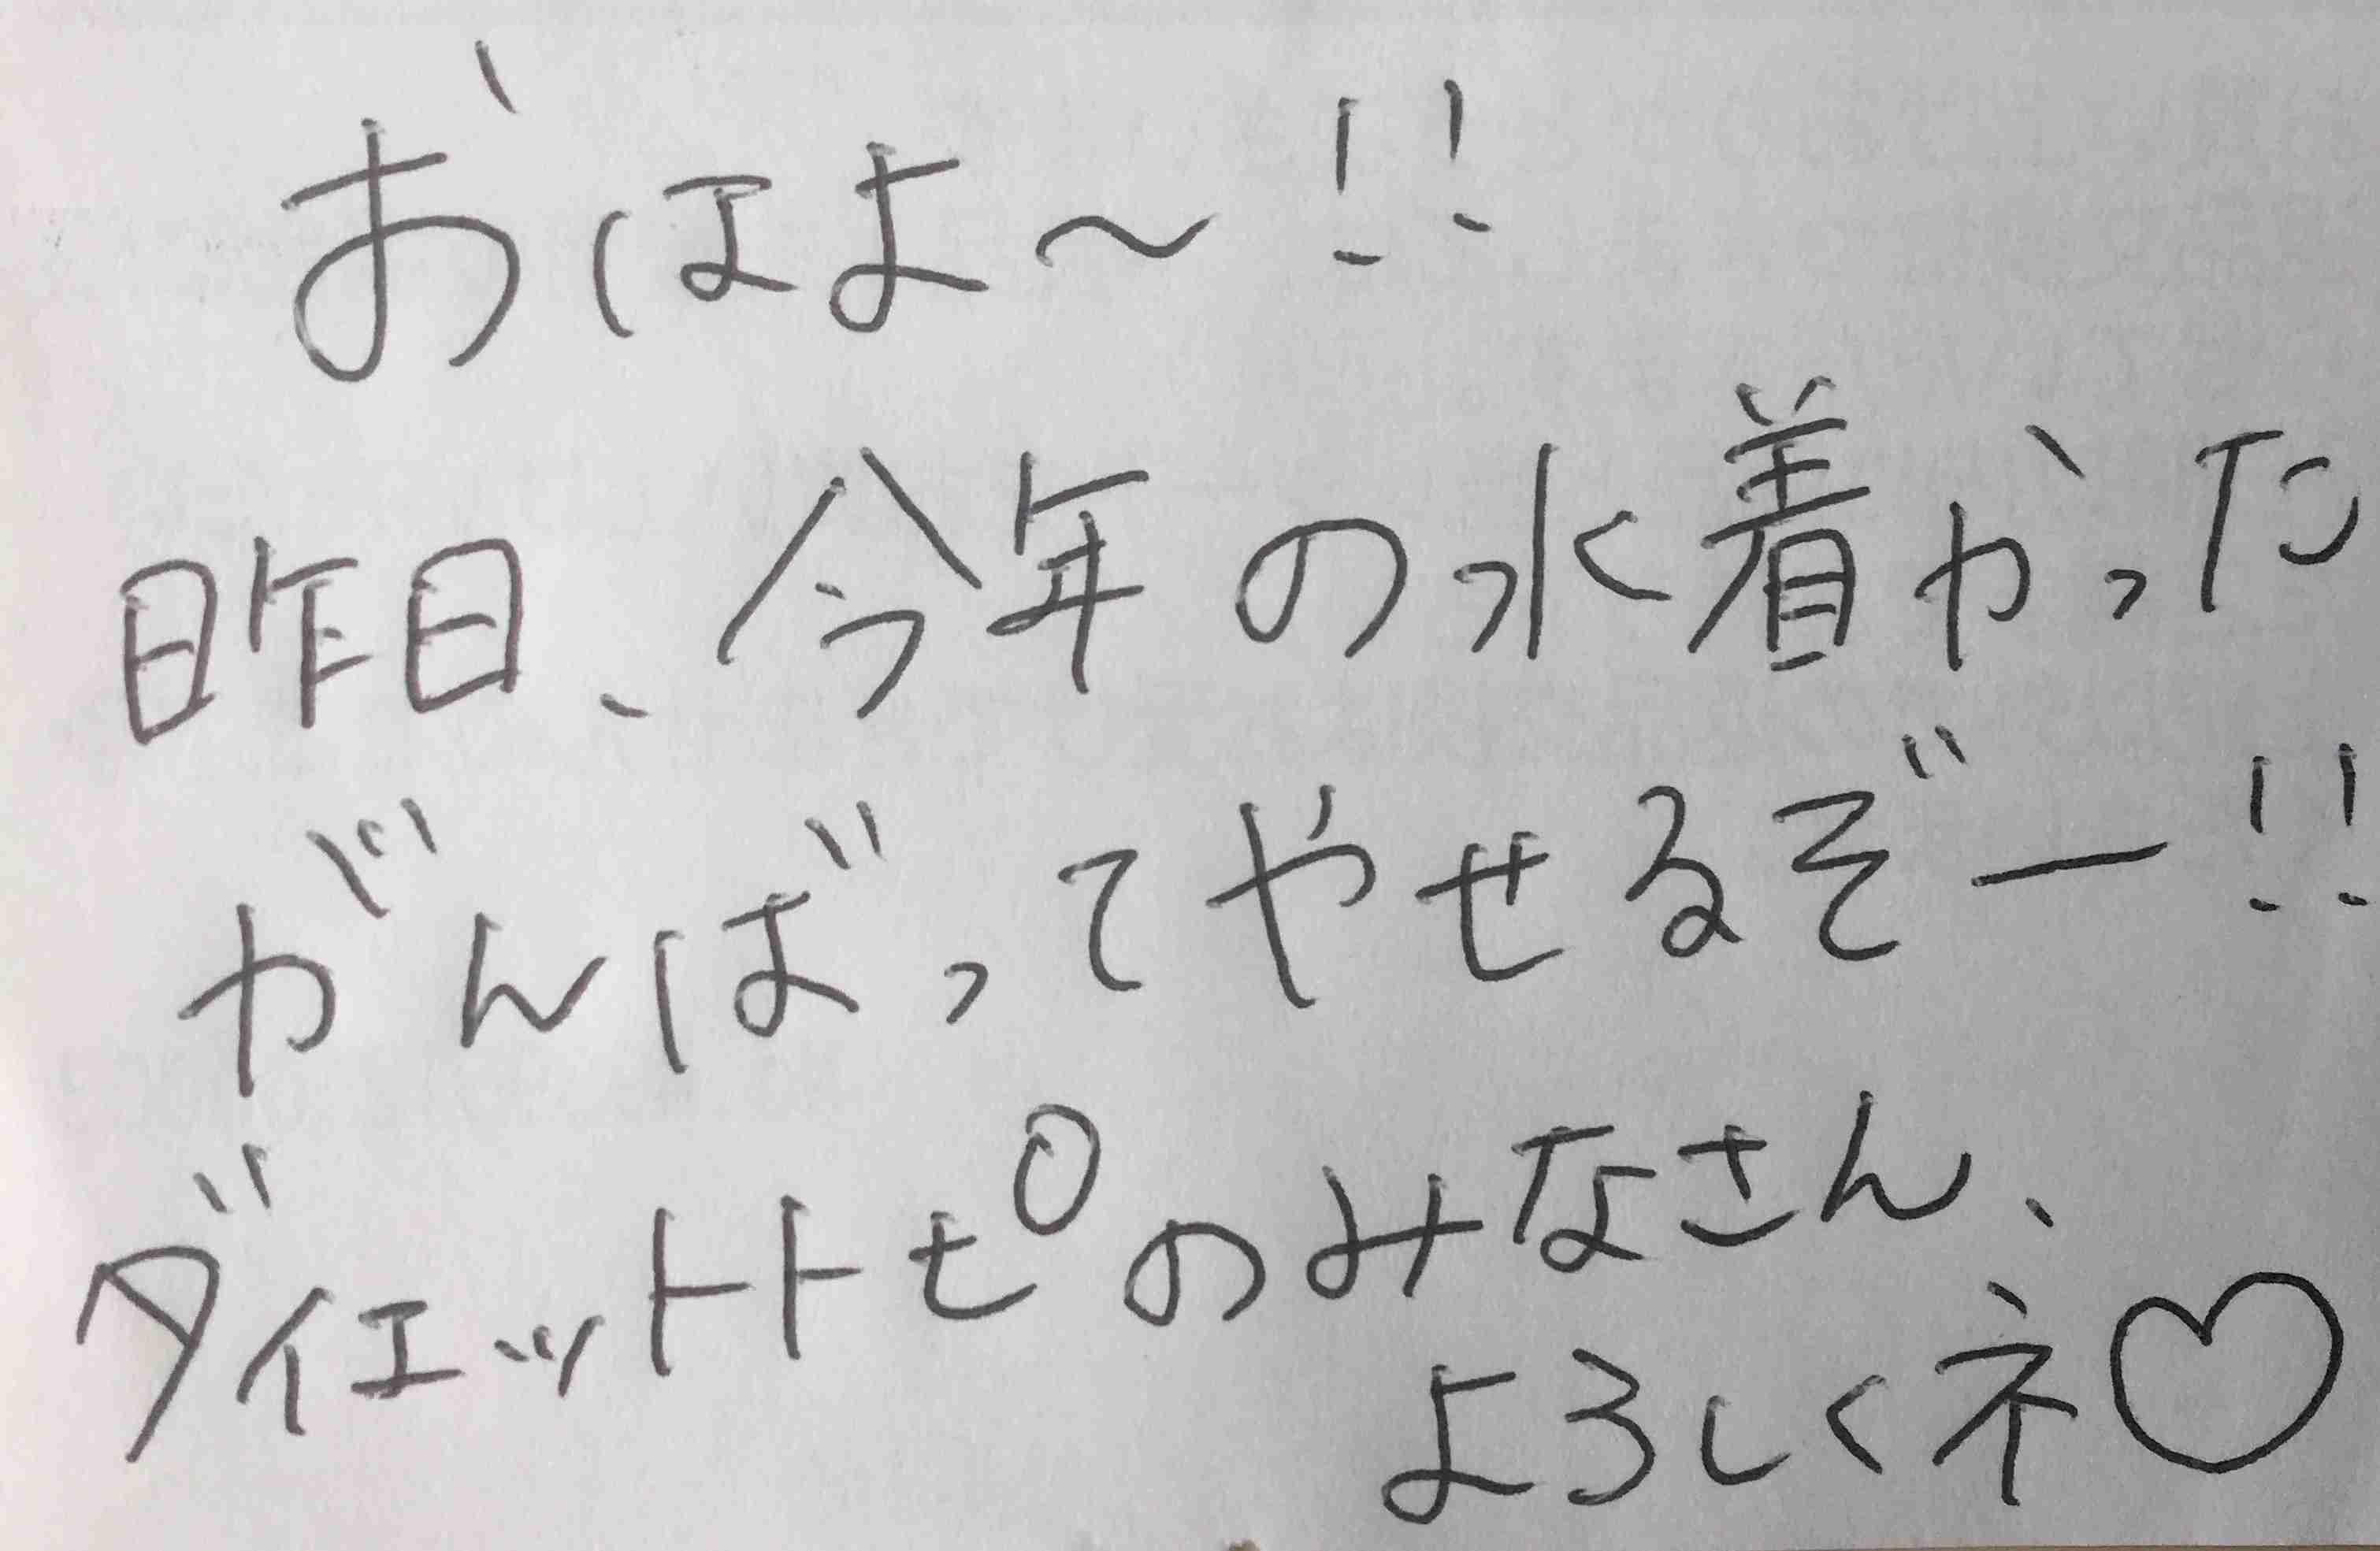 おはよ～!!
昨日、今年の水着かった
がんばってやせるぞー!!
ダイエットトピのみなさん、
よろしくネ♡